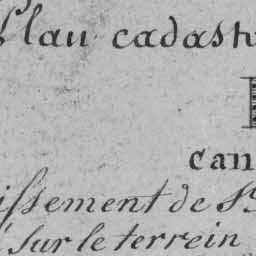 Plan cadast
can
issement de S
sur le terrein